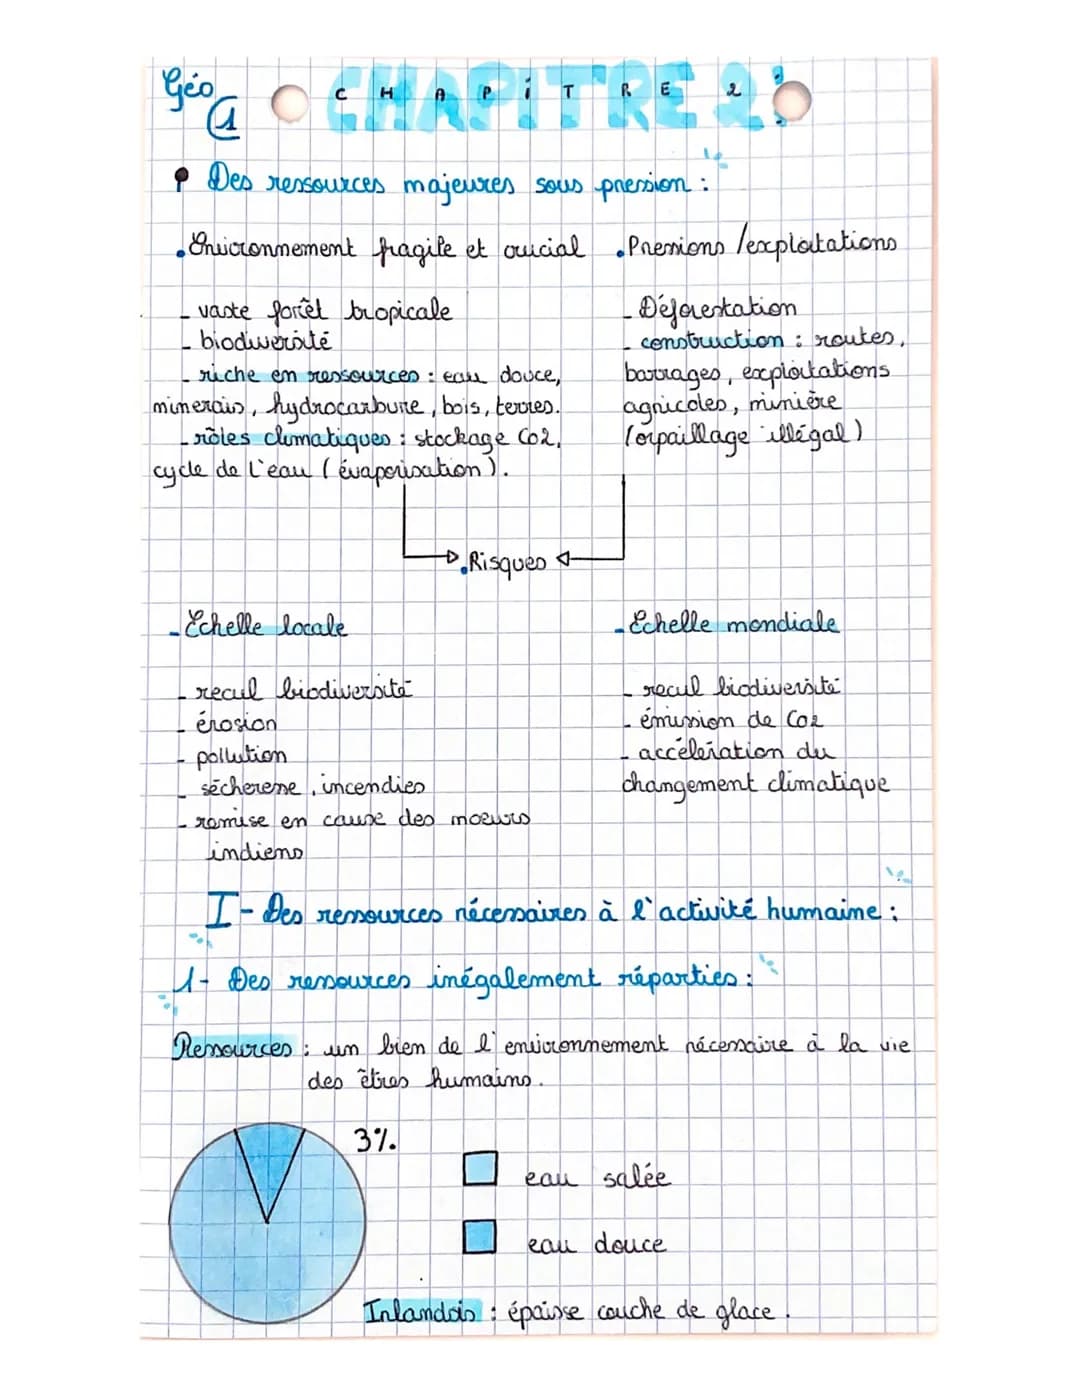 Géo
1
CHAPITRE 2:
Des ressources majeures sous pression :
.Environnement fragile et crucial
- vaste forêt tropicale
- biodiversité
- riche en ressources : eau douce,
minerais, hydrocarbure, bois, terres.
- rôles climatiques : stockage CO2,
cycle de l'eau (évaporisation).
.Pressions /exploitations
- Déforestation
- construction : routes,
barrages, exploitations
agricoles, minière
(orpaillage illégal)
.Risques
- Echelle locale
- recul biodiversité
- érosion
- pollution
- sécheresse, incendies
- remise en cause des moeurs
indiens
- Echelle mondiale
- recul biodiversité
- émission de CO2
- accélération du
changement climatique
I- Des ressources nécessaires à l'activité humaine :
1- Des ressources inégalement réparties :
Ressources : un bien de l'environnement nécessaire à la vie
des êtres humains.
3%
eau salée
eau douce
Inlandsis : épaisse couche de glace.